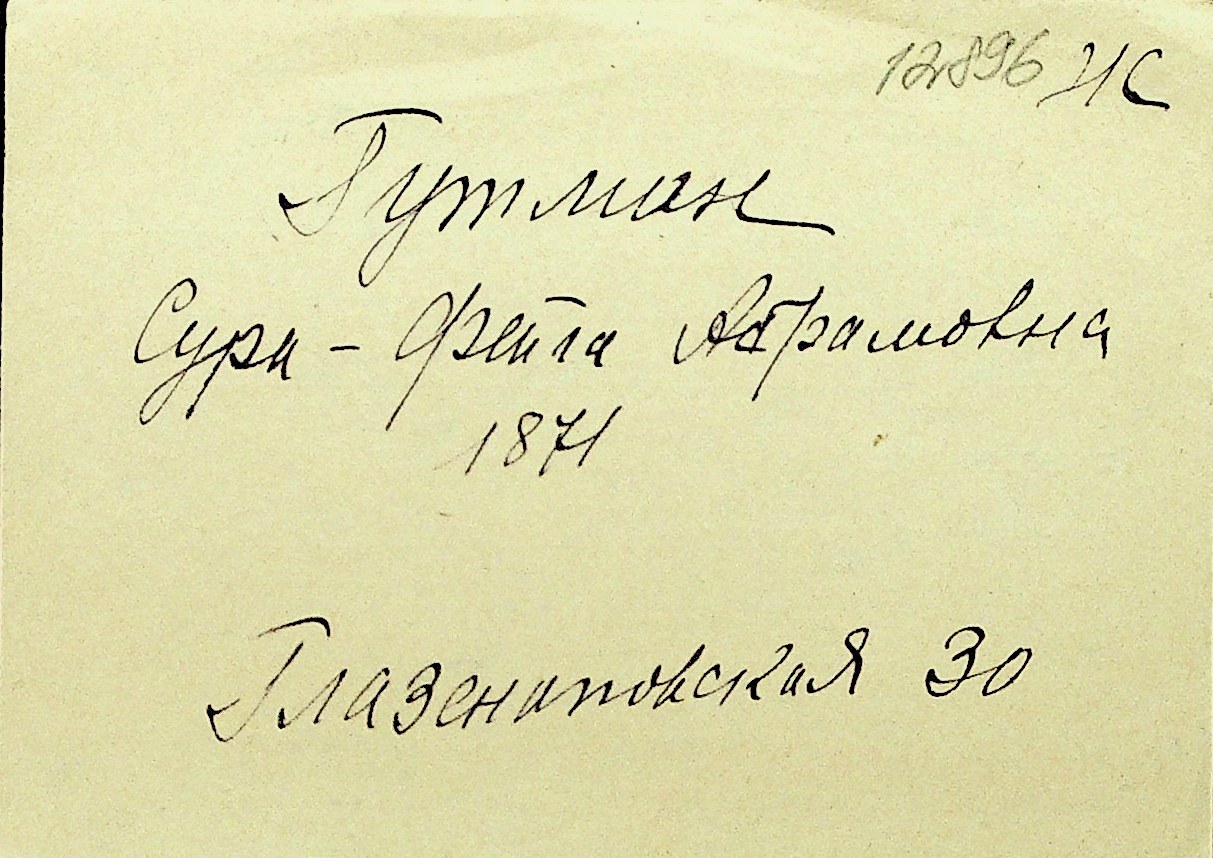 12896 НС
Гутман
Сура - Фейга Абрамовна
1871
Глазенаповская 30